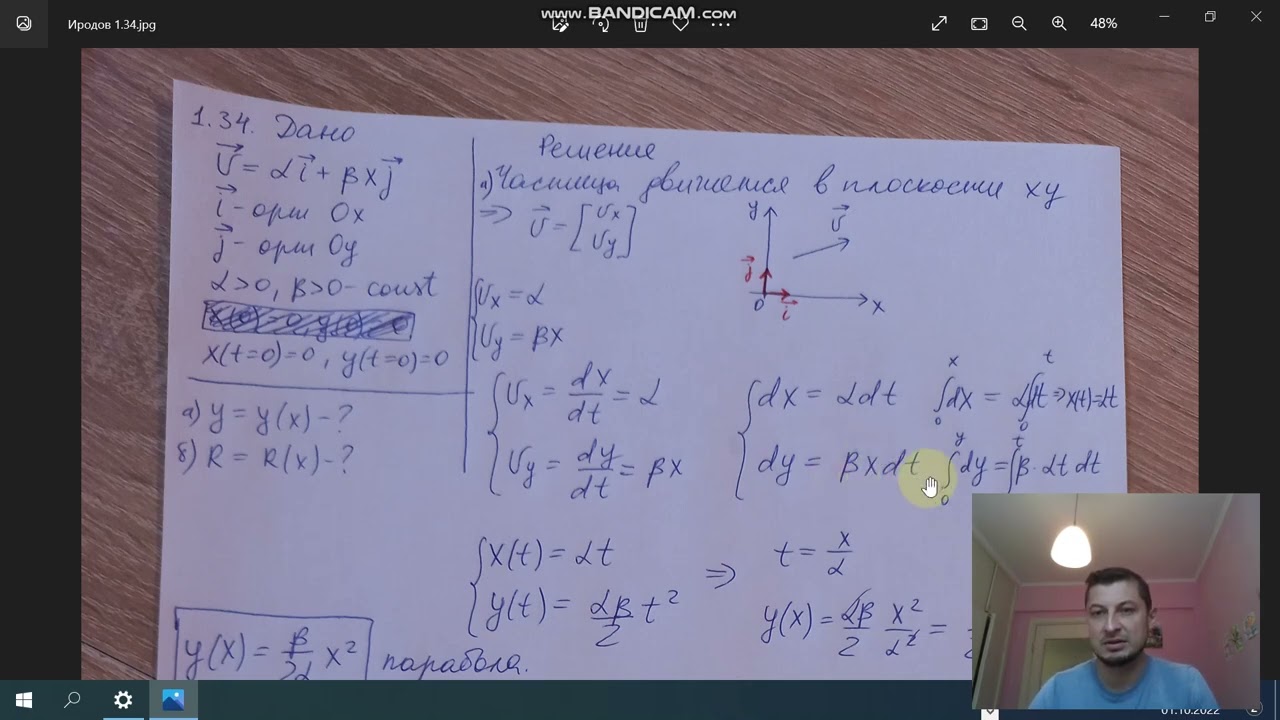 www.BANDICAM.com
Иродов 1.34.jpg
48%
1.34. Дано
v⃗ = αi⃗ + βxj⃗
i⃗ - орт Ox
j⃗ - орт Oy
α>0, β>0 - const
x(t=0)=0, y(t=0)=0
а) y = y(x) - ?
б) R = R(x) - ?
Решение
а) Частица движется в плоскости xy
⇒ v⃗ = [vx vy]
y
v⃗
j⃗
0
i⃗
x
vx = α
vy = βx
vx = dx/dt = α
vy = dy/dt = βx
dx = αdt ∫₀ˣ dx = α∫₀ᵗ dt ⇒ x(t)=αt
dy = βxdt ∫₀ʸ dy = ∫ᵗ β·αt dt
x(t) = αt ⇒ t = x/α
y(t) = αβ/2 t² y(x) = αβ/2 x²/α² =
y(x) = β/2α x² парабола.
01.10.2022